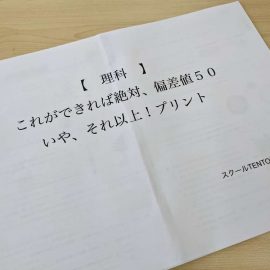 【 理科 】
これができれば絶対、偏差値５０
いや、それ以上！プリント
スクールTENTO